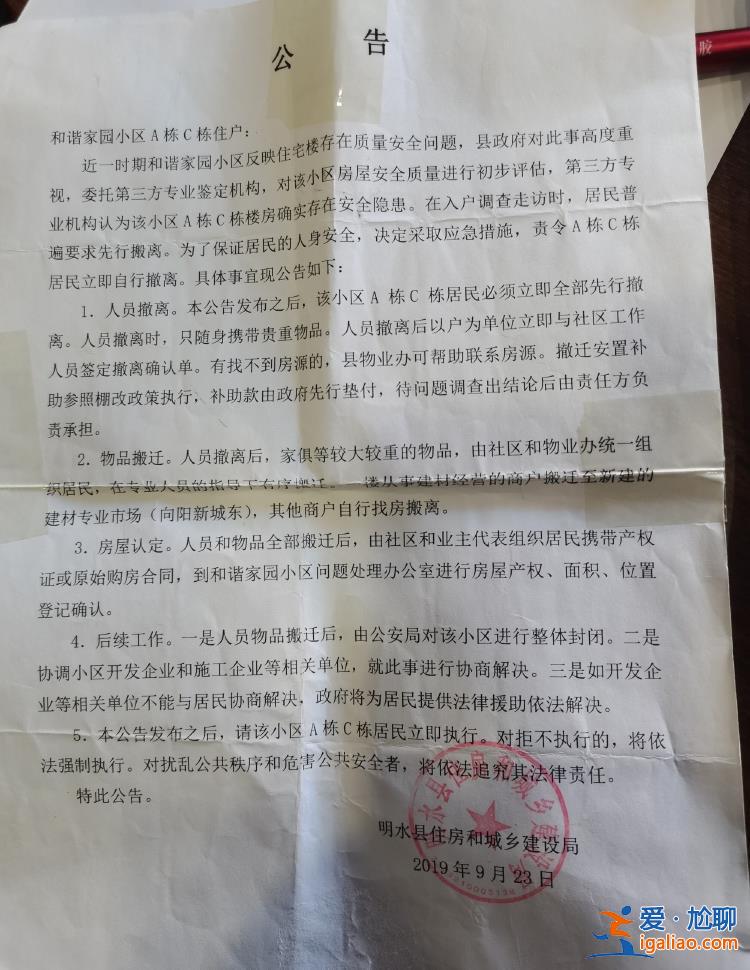 公 告
胶
和谐家园小区A栋C栋住户：
近一时期和谐家园小区反映住宅楼存在质量安全问题，县政府对此事高度重
视，委托第三方专业鉴定机构，对该小区房屋安全质量进行初步评估，第三方专
业机构认为该小区A栋C栋楼房确实存在安全隐患。在入户调查走访时，居民普
遍要求先行搬离。为了保证居民的人身安全，决定采取应急措施，责令A栋C栋
居民立即自行撤离。具体事宜现公告如下：
1．人员撤离。本公告发布之后，该小区A栋C栋居民必须立即全部先行撤
离。人员撤离时，只随身携带贵重物品。人员撤离后以户为单位立即与社区工作
人员签定撤离确认单。有找不到房源的，县物业办可帮助联系房源。撤迁安置补
助参照棚改政策执行，补助款由政府先行垫付，待问题调查出结论后由责任方负
责承担。
2．物品搬迁。人员撤离后，家俱等较大较重的物品，由社区和物业办统一组
织居民，在专业人员的指导下有序搬迁。一楼从事建材经营的商户搬迁至新建的
建材专业市场（向阳新城东），其他商户自行找房搬离。
3．房屋认定。人员和物品全部搬迁后，由社区和业主代表组织居民携带产权
证或原始购房合同，到和谐家园小区问题处理办公室进行房屋产权、面积、位置
登记确认。
4．后续工作。一是人员物品搬迁后，由公安局对该小区进行整体封闭。二是
协调小区开发企业和施工企业等相关单位，就此事进行协商解决。三是如开发企
业等相关单位不能与居民协商解决，政府将为居民提供法律援助依法解决。
5．本公告发布之后，请该小区A栋C栋居民立即执行。对拒不执行的，将依
法强制执行。对扰乱公共秩序和危害公共安全者，将依法追究其法律责任。
特此公告。
明水县住房和城乡建设局
2019年9月23日
明水县住房和城乡建设局
爱·尬聊
igaliao.com